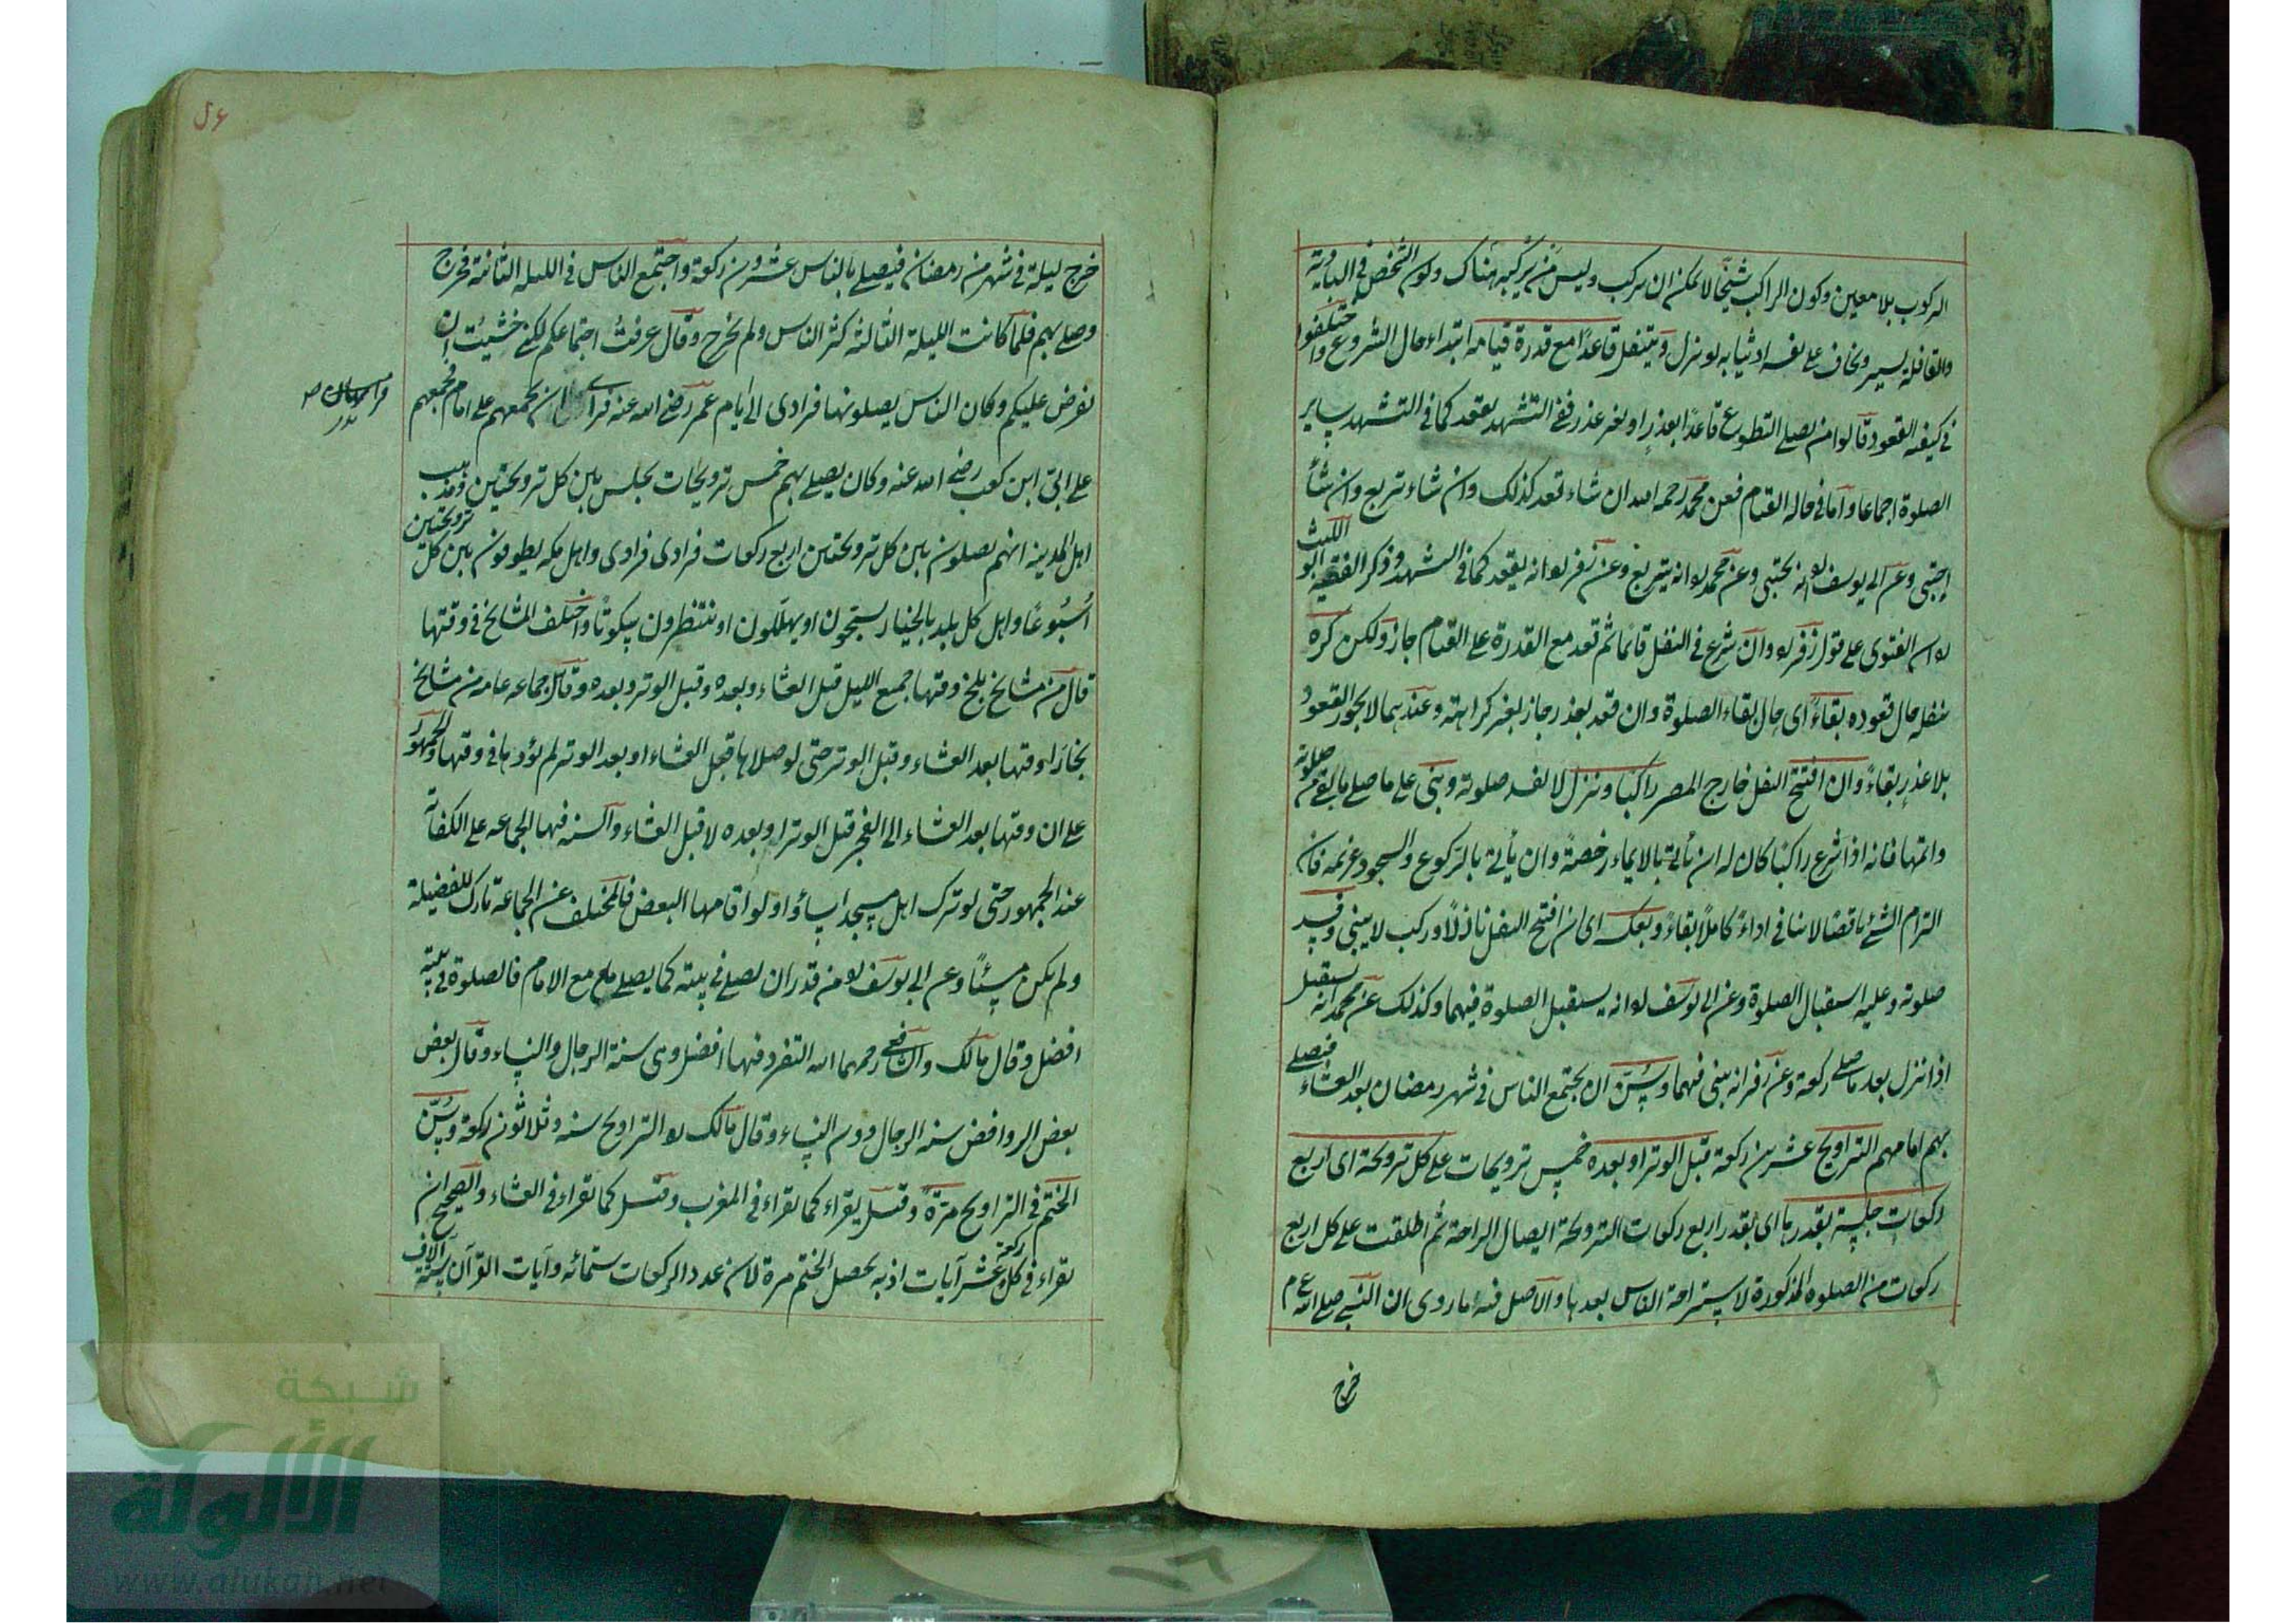 الركوب بلا معين وكون الراكب شيخا لا يمكن ان يركب وليس من يركبه هناك وكون الشخص في البادية
والقافلة يسير ويخاف على نفسه او ثيابه لو نزل ويتنفل قاعدًا مع قدرة قيامه ابتداء حال الشروع واختلفوا
في كيفية القعود قالوا من يصلي التطوع قاعدًا بعذرٍ او بغير عذر ففي التشهد يقعد كما في التشهد ساير
الصلوة اجماعا واما في حالة القيام فعن محمد رحمه الله ان شاء قعد كذلك وان شاء تربع وان شاء
احتبى وعن ابي يوسف انه يحتبي وعن محمد انه يتربع وعن زفر انه يقعد كما في التشهد وذكر الفقيه ابو الليث
ان الفتوى على قول زفر وان شرع في النفل قائما ثم قعد مع القدرة على القيام جاز ولكن كره
تنفله حال قعوده بقاءً اي حال بقاء الصلوة وان قعد بعذر جاز بغير كراهة وعندهما لا يجوز القعود
بلا عذرٍ بقاءً وان افتتح النفل خارج المصر راكبا ونزل لا تفسد صلوته وبنى على ما صلى ما بقي من صلوته
واتمها فانه اذا شرع راكبا كان له ان يأتي بالايماء رخصةً وان يأتي بالركوع والسجود عزيمة فان
التزام الشئ ناقصا لا ينافي اداءً كاملًا بقاءً وبعكسه اي ان افتتح النفل نازلًا وركب لا يبني وفسد
صلوته وعليه استقبال الصلوة وعن ابي يوسف انه يستقبل الصلوة فيهما وكذلك عن محمد انه يستقبل
اذا نزل بعد ما صلى ركعة وعن زفر انه يبني فيهما وسُنّ ان يجتمع الناس في شهر رمضان بعد العشاء فيصلي
بهم امامهم التراويح عشرين ركعة قبل الوتر او بعده خمس ترويحات على كل ترويحة اي اربع
ركعات جلسة بقدرها اي بقدر اربع ركعات الترويحة ايصال الراحة ثم اطلقت على كل اربع
ركعات من الصلوة المذكورة لاستراحة الناس بعدها والاصل فيه ما روى ان النبي صلى الله ع م
خرج
٤٦
خرج ليلة في شهر من رمضان فيصلي بالناس عشرون ركعة واجتمع الناس في الليلة الثانية فخرج
وصلى بهم فلما كانت الليلة الثالثة كثر الناس ولم يخرج وقال عرفتُ اجتماعكم لكني خشيت ان
تفرض عليكم وكان الناس يصلونها فرادى الى ايام عمر رضي الله عنه فراى ان يجمعهم على امام فجمعهم
على ابيّ ابن كعب رضي الله عنه وكان يصلي بهم خمس ترويحات يجلس بين كل ترويحتين ومذهب
اهل المدينة انهم يصلون بين كل ترويحتين اربع ركعات فرادى فرادى واهل مكه يطوفون بين كل ترويحتين
اُسبُوعًا واهل كل بلد بالخيار يسبّحون او يهلّلون او ينتظرون سكوتًا واختلف المشايخ في وقتها
قال من مشايخ بلخ وقتها جميع الليل قبل العشاء وبعده وقبل الوتر وبعده وقال جماعة عامة من مشايخ
بخارا وقتها بعد العشاء وقبل الوتر حتى لو صلاها قبل العشاء او بعد الوتر لم يؤدها في وقتها والجمهور
على ان وقتها بعد العشاء الى الفجر قبل الوتر او بعده لا قبل العشاء والسنة فيها الجماعة على الكفاية
عند الجمهور حتى لو ترك اهل مسجد اساؤا ولو اقامها البعض فالمختلف عن الجماعة تارك للفضيلة
ولم يكن مسيئًا وعن ابي يوسف من قدر ان يصلي في بيته كما يصلي مع الامام فالصلوة في بيته
افضل وقال مالك والشافعي رحمهما الله التفرد فيها افضل وهي سنة الرجال والنساء وقال بعض
بعض الروافض سنة الرجال دون النساء وقال مالك التراويح ستة وثلاثون ركعة وسُنّ
الختم في التراويح مرّةً وقيل يقراء كما يقراء في المغرب وقيل كما يقراء في العشاء والصحيح ان
يقراء في كل ركعة عشر آيات اذ به يحصل الختم مرة لان عدد الركعات ستمائه وآيات القرآن ستة آلاف
شبكة
الألوكة
www.alukah.net